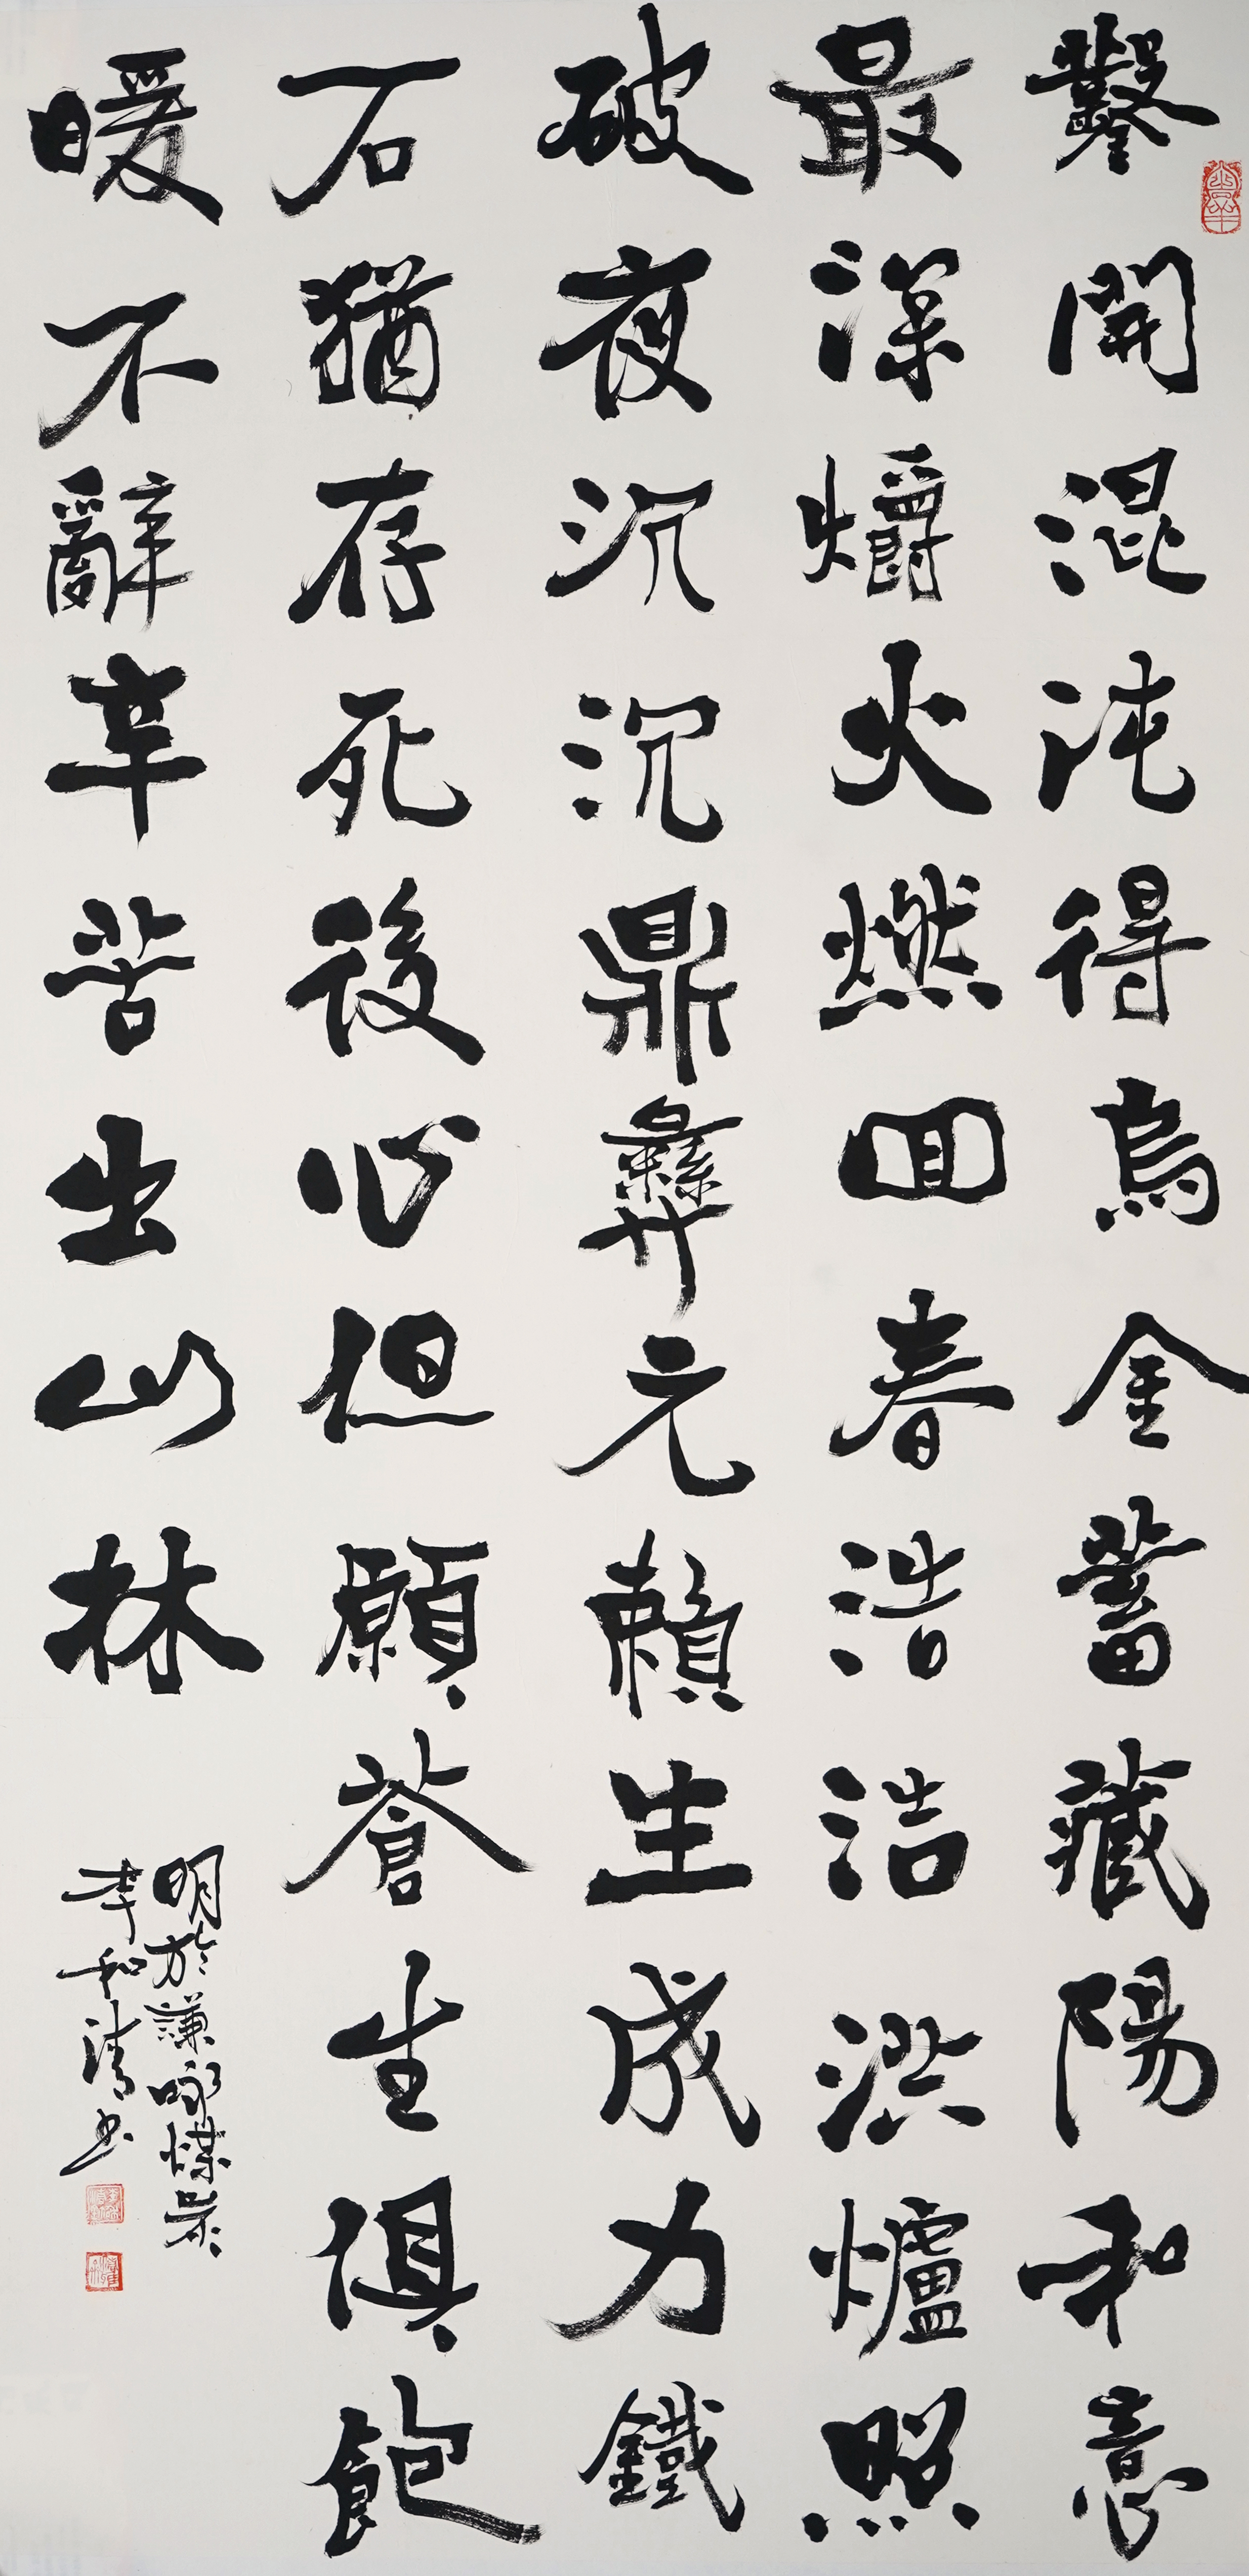 鑿開混沌得烏金蓄藏陽和意
最深爝火燃回春浩浩洪爐照
破夜沉沉鼎彝元賴生成力鐵
石猶存死後心但願蒼生俱飽
暖不辭辛苦出山林
明於謙詠煤炭
李和清书